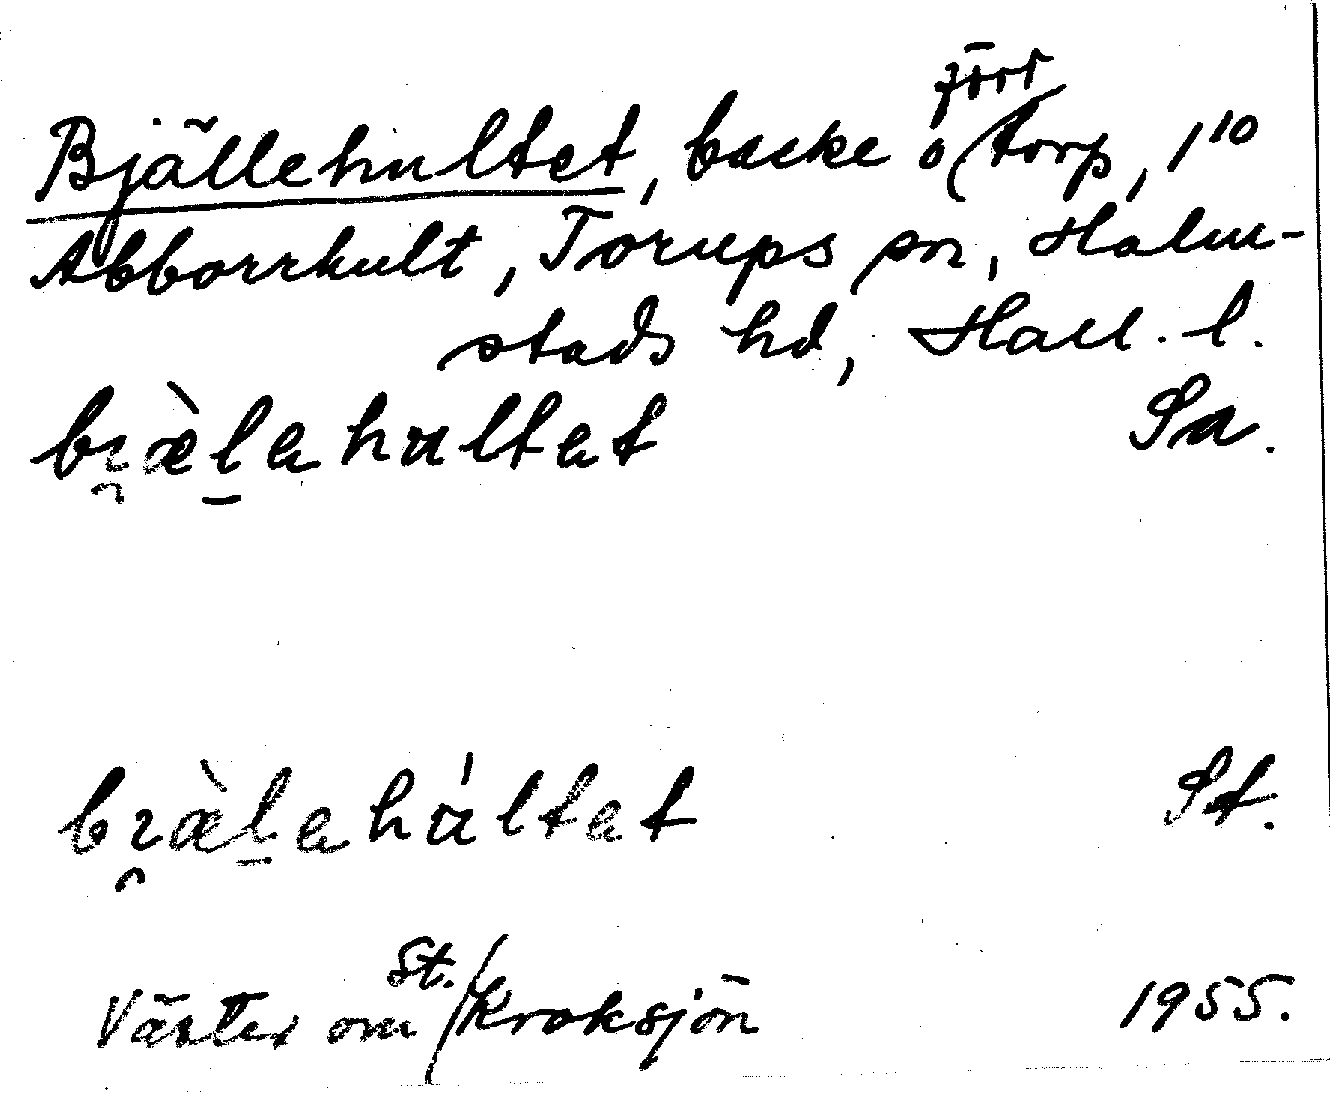 Bjällehultet, backe o förr torp, 1¹⁰
Abborrhult, Torups sn, Halm-
stads hd, Hall. l.
bı̯æ̀l̠ahultat Sa.
bı̯æ̀l̠ahúltat St.
Väster om St. Kroksjön 1955.